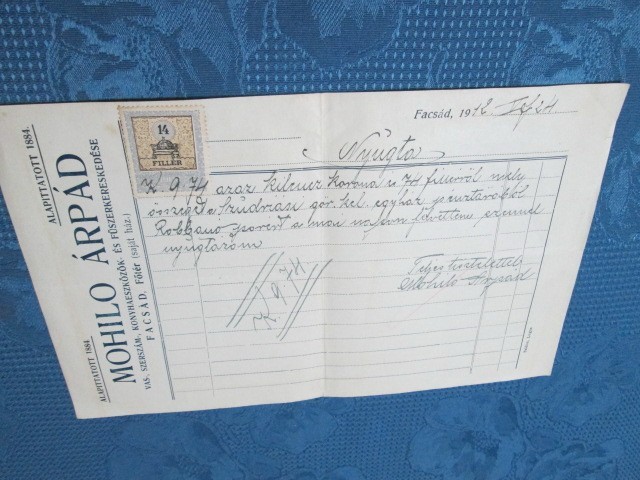 ALAPITTATOTT 1884.
MOHILO ÁRPÁD
VAS, SZERSZÁM-, KONYHAESZKÖZÖK- ÉS FŰSZERKERESKEDÉSE
FACSÁD, Főtér (saját ház.)
ALAPITTATOTT 1884.
14
FILLÉR
Facsád, 1912
Nyugta
K. 9.74 azaz kilencz korona és 74 fillérről mely
összeget a gör. kel. egyház pénztárából
a mai napon felvettem ezennel
nyugtázom
K 9.74
Teljes tisztelettel
Mohilo Árpád